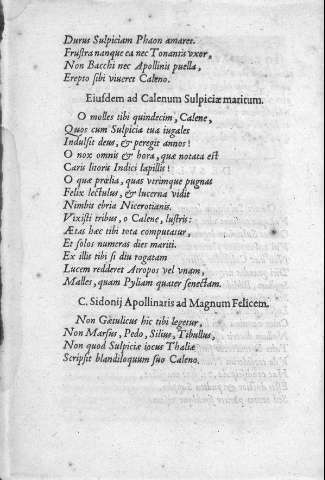 Durus Sulpiciam Phaon amaret.
Frustra nanque ea nec Tonantis vxor,
Non Bacchi nec Apollinis puella,
Erepto sibi viueret Caleno.
Eiusdem ad Calenum Sulpiciæ maritum.
O molles tibi quindecim, Calene,
Quos cum Sulpicia tua iugales
Indulsit deus, & peregit annos!
O nox omnis & hora, quæ notata est
Caris litoris Indici lapillis!
O quæ prœlia, quas vtrimque pugnas
Felix lectulus, & lucerna vidit
Nimbis ebria Nicerotianis.
Vixisti tribus, o Calene, lustris:
Ætas hæc tibi tota computatur,
Et solos numeras dies mariti.
Ex illis tibi si diu rogatam
Lucem redderet Atropos vel vnam,
Malles, quam Pyliam quater senectam.
C. Sidonij Apollinaris ad Magnum Felicem.
Non Gætulicus hic tibi legetur,
Non Marsus, Pedo, Silius, Tibullus,
Non quod Sulpiciæ iocus Thaliæ
Scripsit blandiloquum suo Caleno.